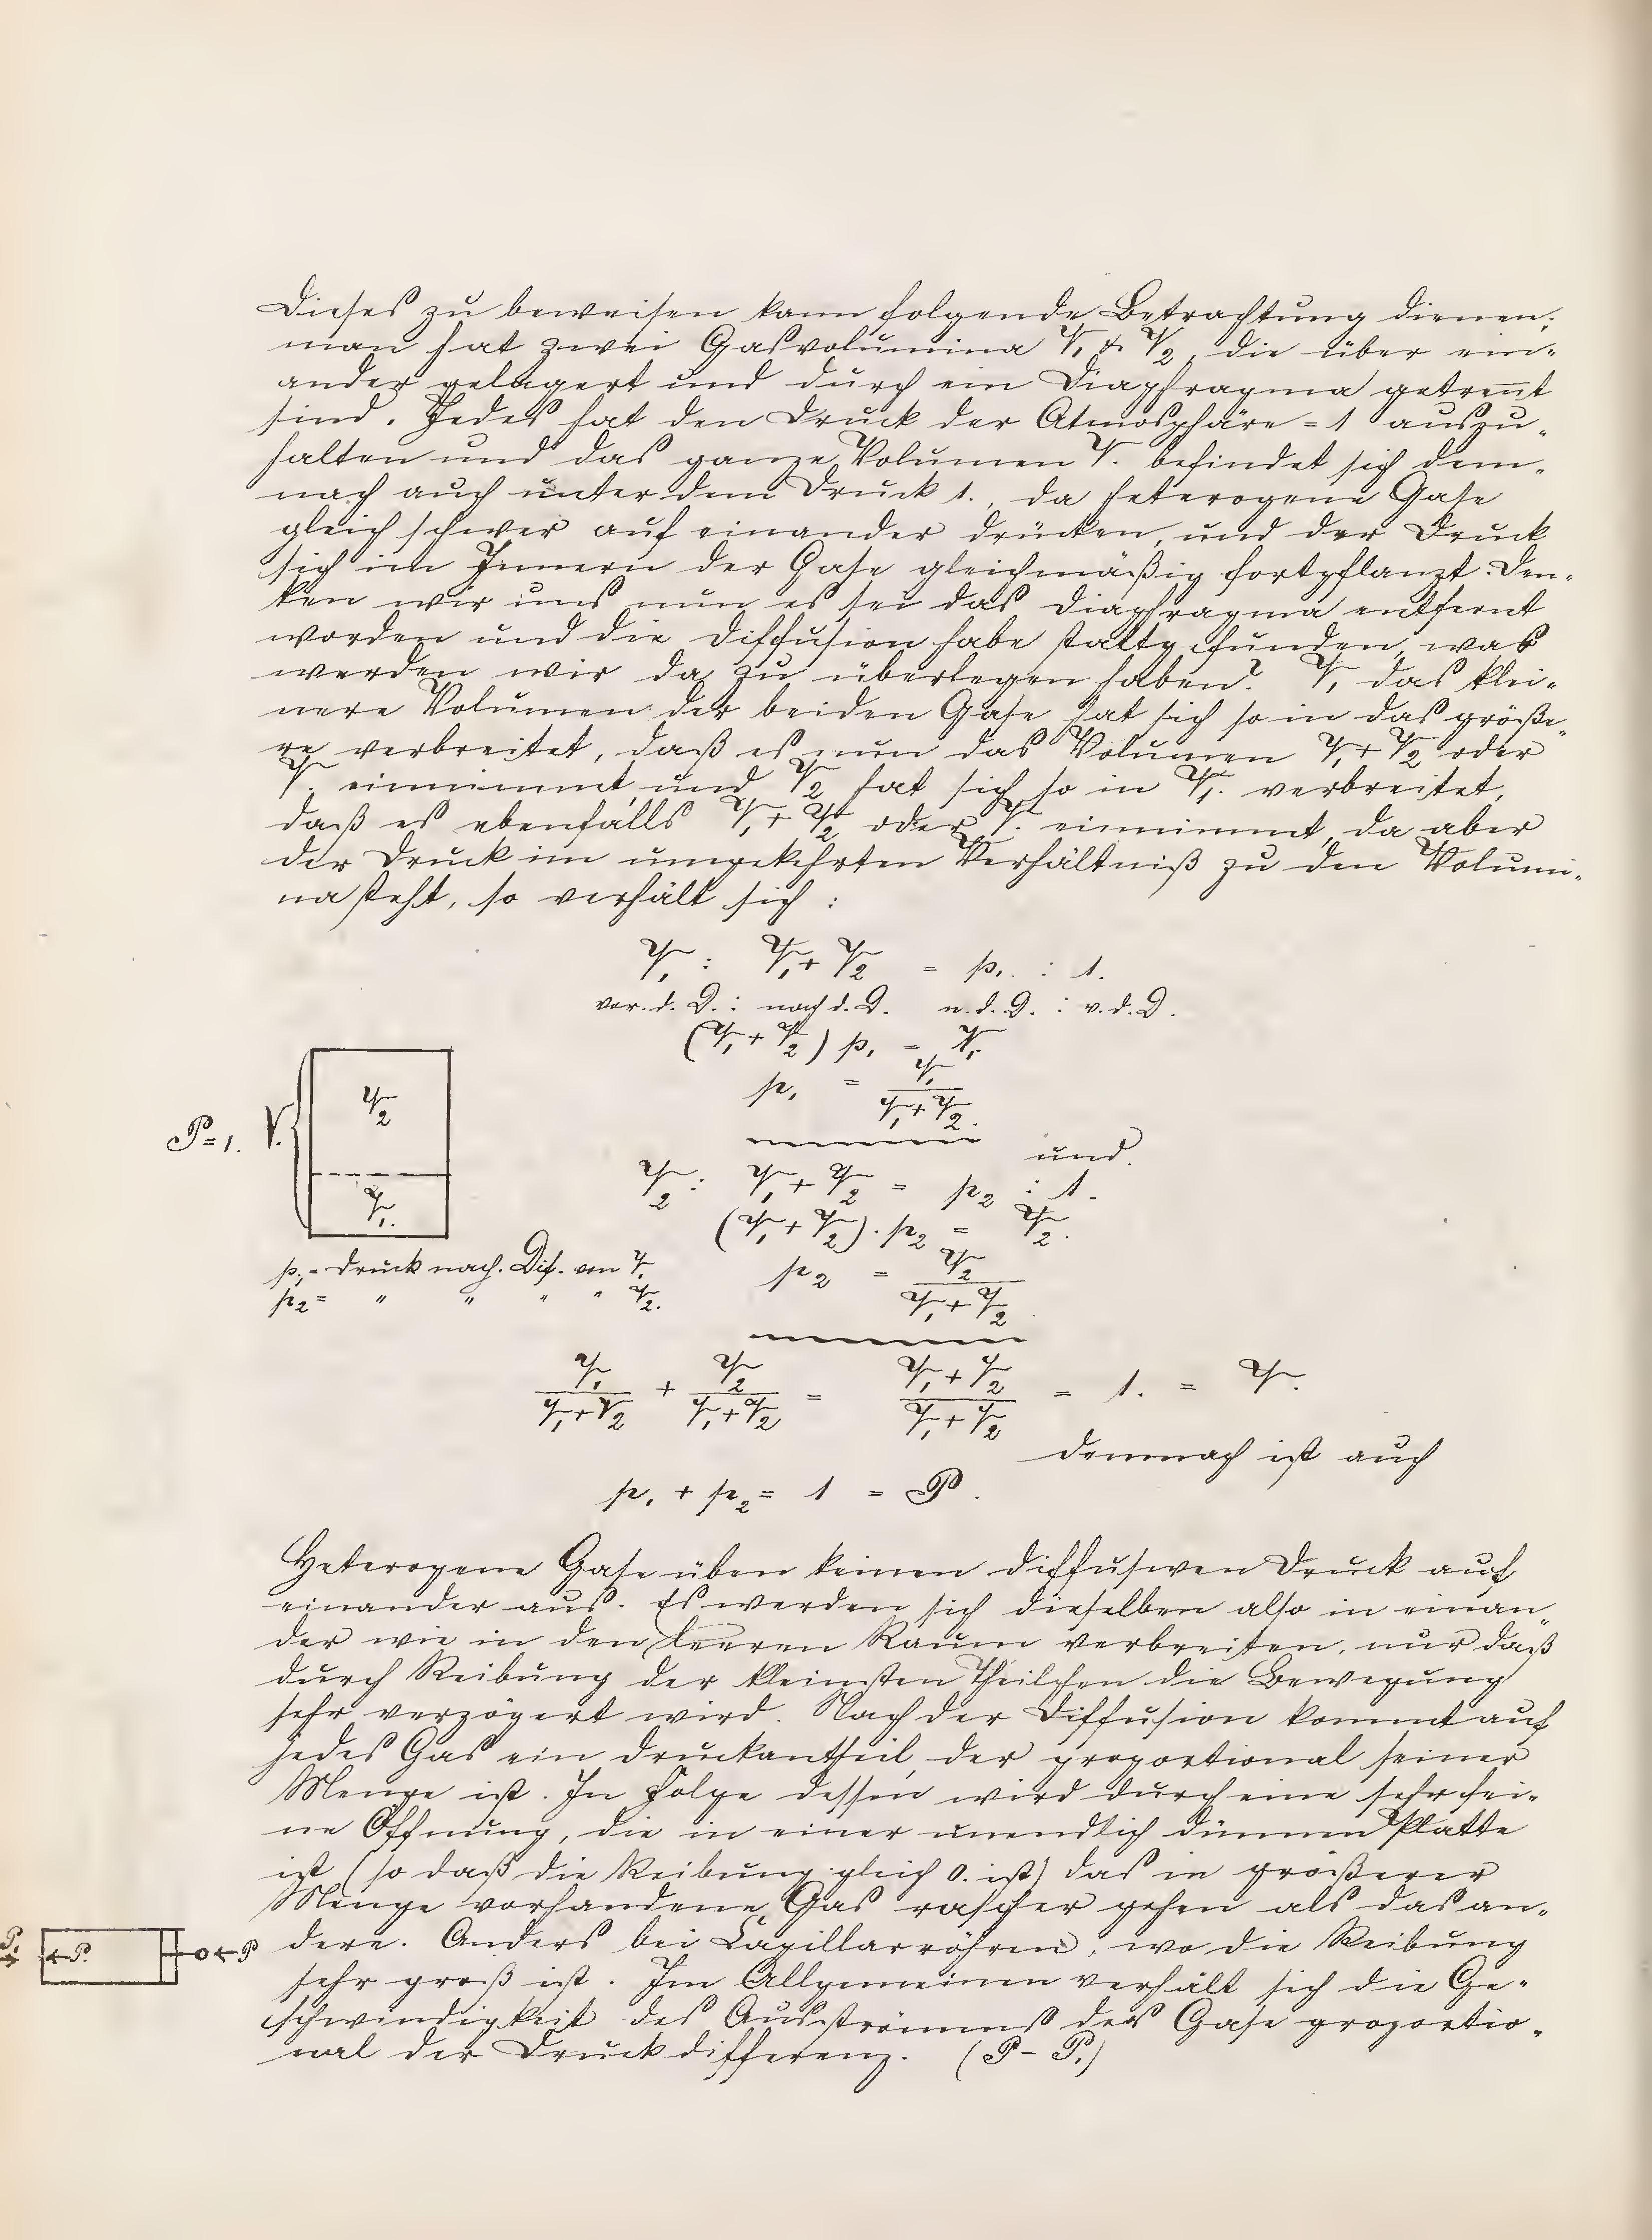 Dieses zu beweisen kann folgende Betrachtung dienen;
man hat zwei Gasvolumina V₁ & V₂, die über ein-
ander gelagert und durch ein Diaphragma getrennt
sind. Jedes hat den Druck der Atmosphäre = 1 auszu-
halten und das ganze Volumen V. befindet sich dem-
nach auch unter dem Druck 1., da heterogene Gase
gleich schwer auf einander drücken, und der Druck
sich im Innern der Gase gleichmäßig fortpflanzt. Den-
ken wir uns nun es sei das Diaphragma entfernt
worden und die Diffusion habe stattgefunden, was
werden wir da zu überlegen haben? V₁ das klei-
nere Volumen der beiden Gase hat sich so in das größe-
re verbreitet, daß es nun das Volumen V₁ + V₂ oder
V. einnimmt, und V₂ hat sich so in V₁. verbreitet,
daß es ebenfalls V₁ + V₂ oder V. einnimmt, da aber
der Druck im umgekehrten Verhältniß zu den Volumi-
na steht, so verhält sich :
V₁ : V₁ + V₂ = p₁. : 1.
vor. d. D. : nach d. D. n. d. D. : v. d. D.
(V₁ + V₂) p₁ = V₁.
p₁ = V₁ / (V₁ + V₂).
und.
P = 1. V. V₂ V₁.
V₂ : V₁ + V₂ = p₂ : 1.
(V₁ + V₂) . p₂ = V₂.
p₁ = Druck nach. Dif. von V₁
p₂ = " " " " V₂.
p₂ = V₂ / (V₁ + V₂).
V₁ / (V₁ + V₂) + V₂ / (V₁ + V₂) = (V₁ + V₂) / (V₁ + V₂) = 1. = V.
demnach ist auch
p₁ + p₂ = 1 = P.
Heterogene Gase üben keinen diffusiven Druck auf
einander aus. Es werden sich dieselben also in einan-
der wie in den leeren Raum verbreiten, nur daß
durch Reibung der kleinsten Theilchen die Bewegung
sehr verzögert wird. Nach der Diffusion kommt auf
jedes Gas ein Druckantheil, der proportional seiner
Menge ist. In Folge dessen wird durch eine sehr fei-
ne Öffnung, die in einer unendlich dünnen Platte
ist (so daß die Reibung gleich 0. ist) das in größerer
Menge vorhandene Gas rascher gehen als das an-
dere. Anders bei Capillarröhren, wo die Reibung
P₁ ←P. ←P
sehr groß ist. Im Allgemeinen verhält sich die Ge-
schwindigkeit des Ausströmens des Gase proportio-
nal der Druckdifferenz. (P - P₁)